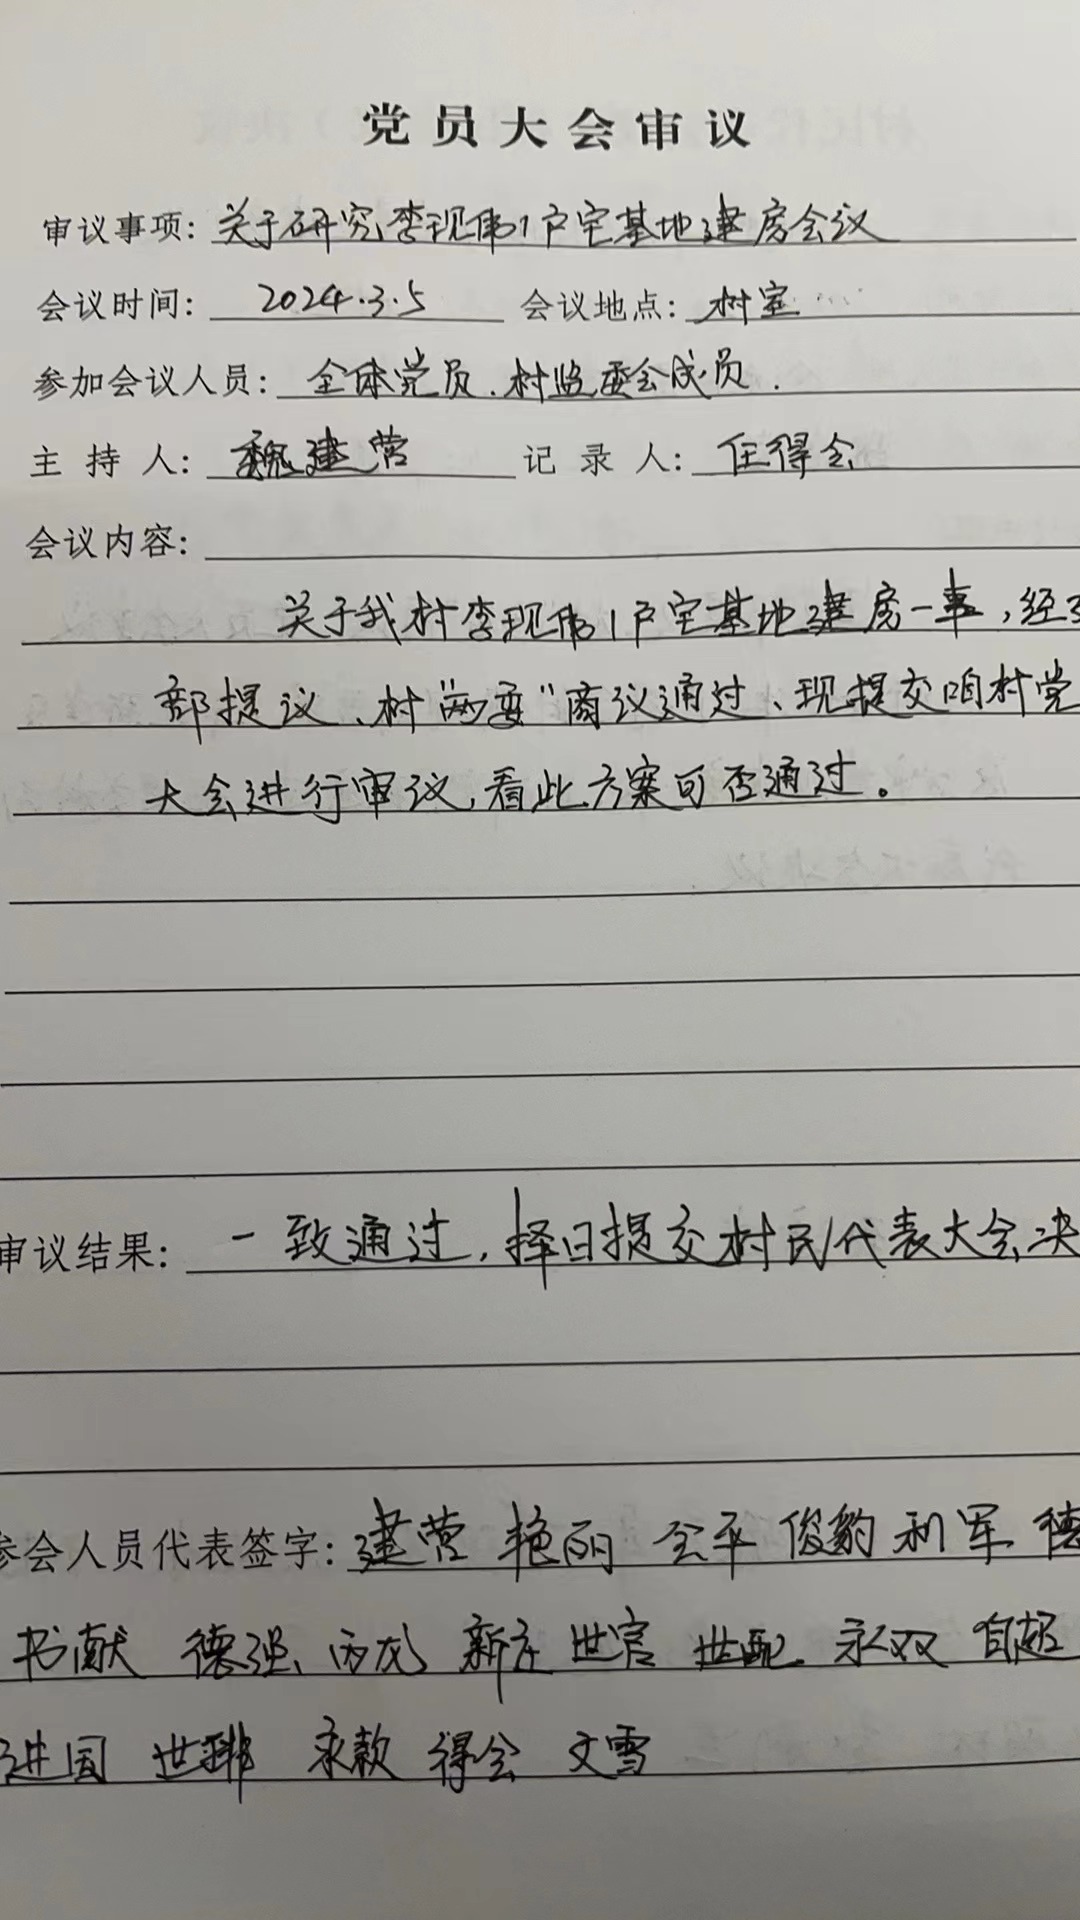 党员大会审议
审议事项: 关于研究李现伟1户宅基地建房会议
会议时间: 2024.3.5 会议地点: 村室
参加会议人员: 全体党员、村监委会成员.
主持人: 魏建营 记录人: 任得会
会议内容:
关于我村李现伟1户宅基地建房一事,经
部提议、村“两委”商议通过、现提交咱村党
大会进行审议,看此方案可否通过。
审议结果: 一致通过,择日提交村民代表大会决
参会人员代表签字: 建营 艳丽 全平 俊豹 利军 德
书献 德强 丙龙 新庄 世官 世配 永双 自起
进国 世耕 永款 得会 文雪